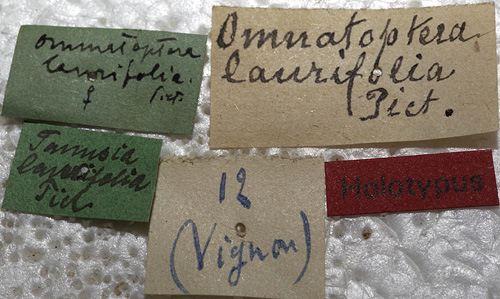 Ommatoptera
laurifolia.
♀ Pict.
Omnatoptera
laurifolia
Pict.
Tanusia
laurifolia
Pict.
12
(Vignon)
Holotypus